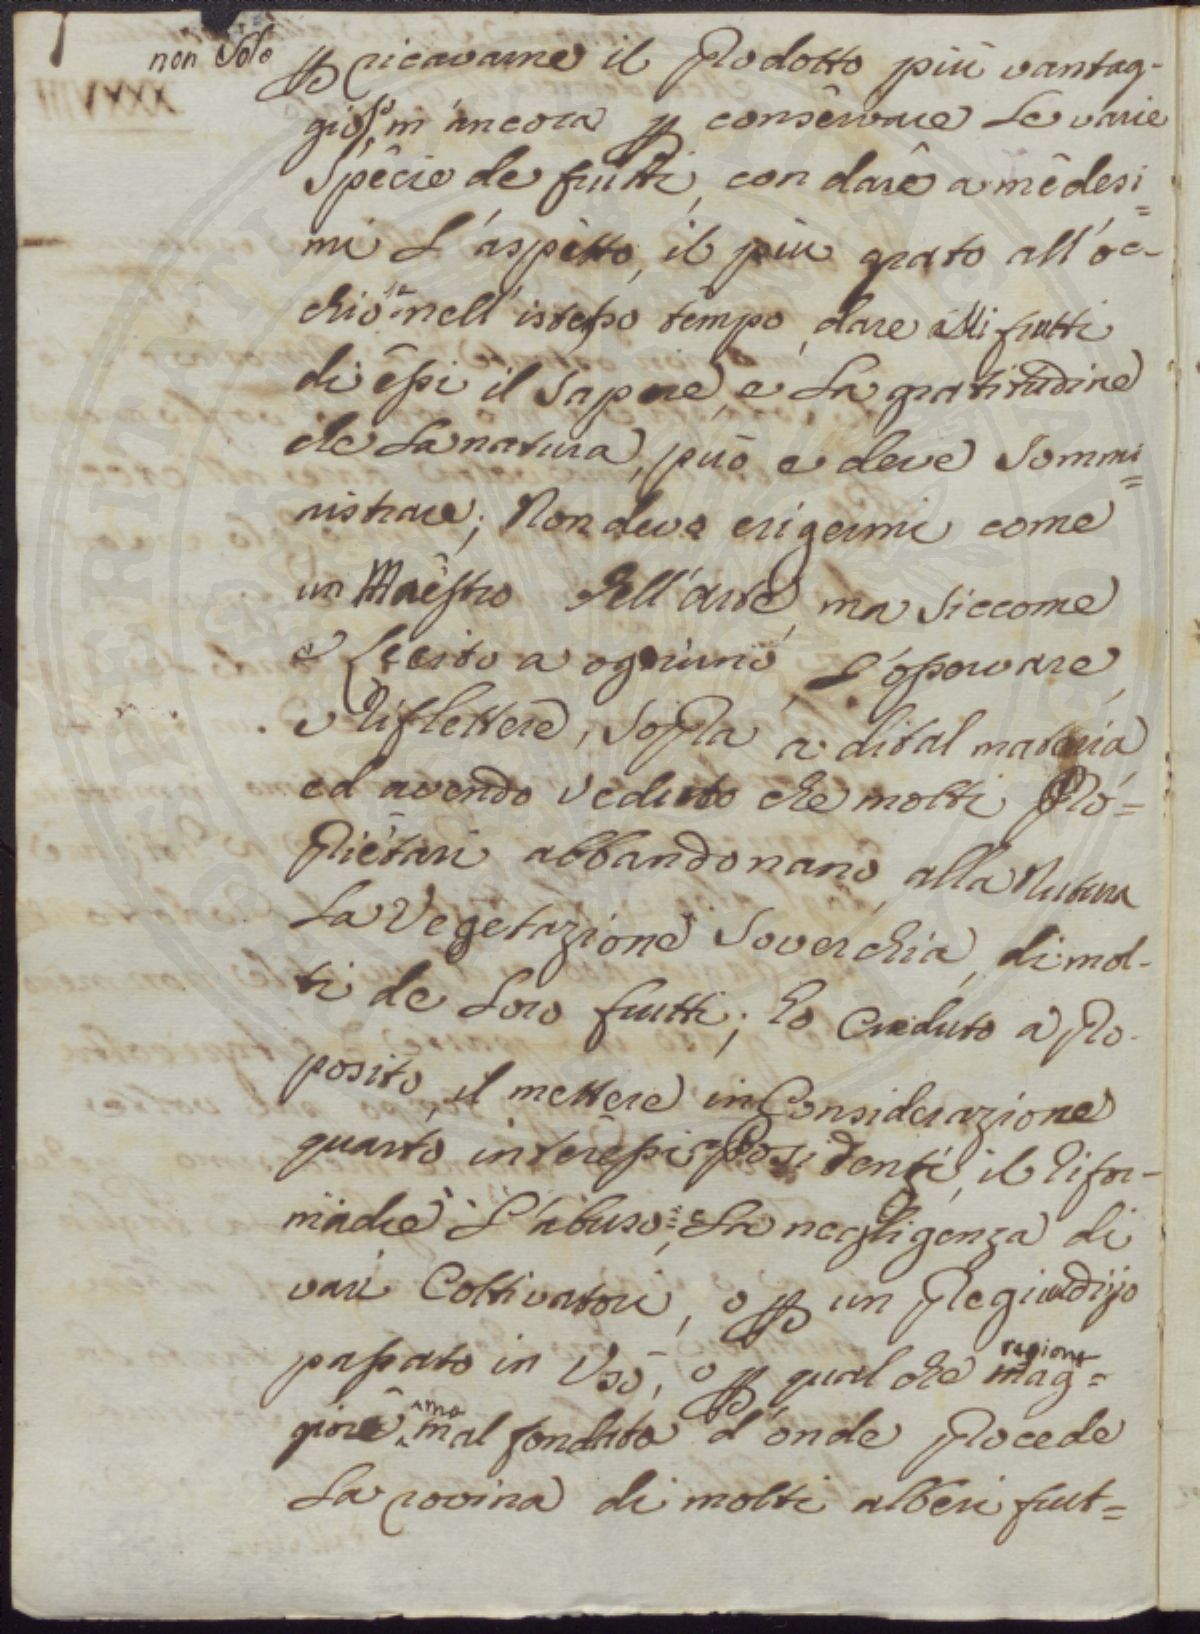 non Solo p ricavarne il Prodotto più vantag-
gioso, m'ancora p conservare Le varie
Spêcie de frutti, con darê a mêdesi=
mi L'aspetto, il più grato all'oc-
chio nell'istesso têmpo, dare alli frutti
di êssi il Sapore, e La gratitudine
che La natura, può e deve Sommi=
nistrare; Non devo erigermi come
un Maêstro dell'arte, ma Siccome
e Lecito a ogniuno, L'osservare,
e Riflettere, Sopra a di tal materia
ed avendo Veduto che molti Pro=
Prietari abbandonano, alla Natura
La Vegetazione Soverchia, di mol-
ti de Loro frutti; ho Creduto a Pro-
posito, il mettere in Considerazione
quanto interessi Possidenti, il Rifor-
mare L'abuso, e La negligenza di
vari Coltivatori, o p un Pregiudizio
passato in Uso, o p qual che ragione mag=
giore, ma mal fondata d'onde Procede
La rovina di molti alberi frut=
XXXVIII
VERITATIS